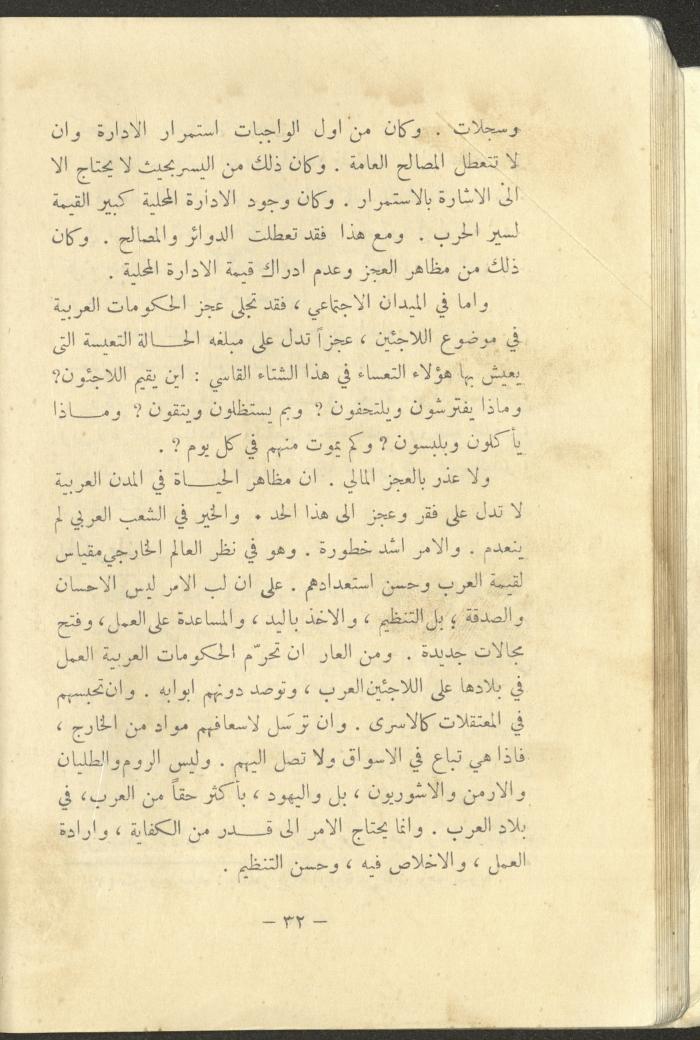 وسجلات . وكان من اول الواجبات استمرار الادارة وان
لا تتعطل المصالح العامة . وكان ذلك من اليسر بحيث لا يحتاج الا
الى الاشارة بالاستمرار . وكان وجود الادارة المحلية كبير القيمة
لسير الحرب . ومع هذا فقد تعطلت الدوائر والمصالح . وكان
ذلك من مظاهر العجز وعدم ادراك قيمة الادارة المحلية .
واما في الميدان الاجتماعي ، فقد تجلى عجز الحكومات العربية
في موضوع اللاجئين ، عجزاً تدل على مبلغه الحالة التعيسة التى
يعيش بها هؤلاء التعساء في هذا الشتاء القاسي : اين يقيم اللاجئون?
وماذا يفترشون ويلتحفون ? وبم يستظلون ويتقون ? وماذا
يأكلون ويلبسون ? وكم يموت منهم في كل يوم ? .
ولا عذر بالعجز المالي . ان مظاهر الحياة في المدن العربية
لا تدل على فقر وعجز الى هذا الحد . والخير في الشعب العربي لم
ينعدم . والامر اشد خطورة . وهو في نظر العالم الخارجي مقياس
لقيمة العرب وحسن استعدادهم . على ان لب الامر ليس الاحسان
والصدقة ، بل التنظيم ، والاخذ باليد ، والمساعدة على العمل ، وفتح
مجالات جديدة . ومن العار ان تحرّم الحكومات العربية العمل
في بلادها على اللاجئين العرب ، وتوصد دونهم ابوابه . وان تحبسهم
في المعتقلات كالاسرى . وان ترسَل لاسعافهم مواد من الخارج ،
فاذا هي تباع في الاسواق ولا تصل اليهم . وليس الروم والطليان
والارمن والاشوريون ، بل واليهود ، بأكثر حقاً من العرب ، في
بلاد العرب . وانما يحتاج الامر الى قدر من الكفاية ، وارادة
العمل ، والاخلاص فيه ، وحسن التنظيم .
– ٣٢ –